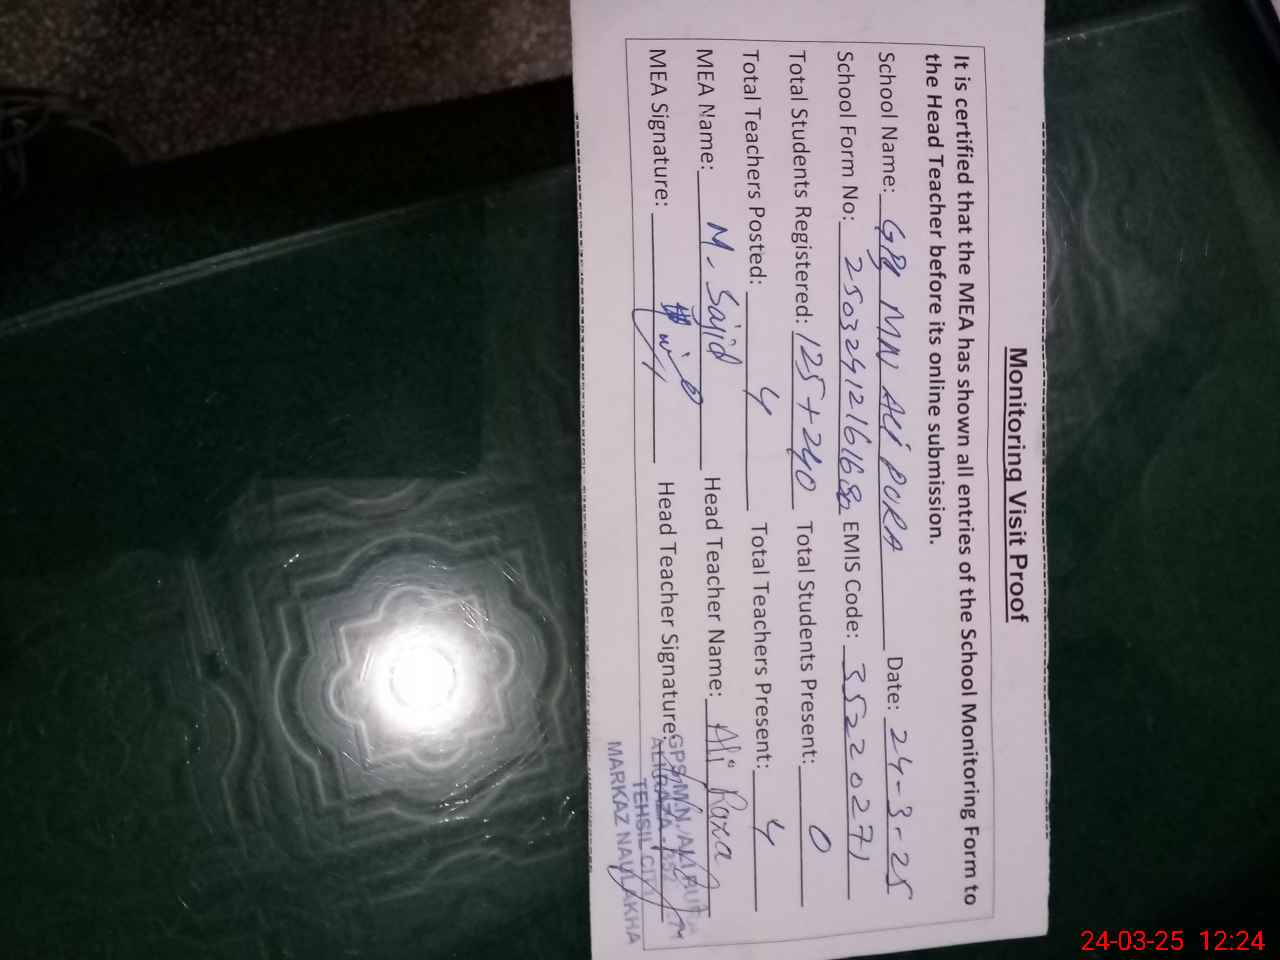 Monitoring Visit Proof
It is certified that the MEA has shown all entries of the School Monitoring Form to
the Head Teacher before its online submission.
School Name: GPS MN ALI PURA Date: 24-3-25
School Form No: EMIS Code: 35220271
Total Students Registered: 125+240 Total Students Present: 0
Total Teachers Posted: 4 Total Teachers Present: 4
MEA Name: M. Sajid Head Teacher Name: Ali Raza
MEA Signature: Head Teacher Signature:
GPS M.N. ALI PURA
ALI RAZA
TEHSIL CITY
MARKAZ NAULAKHA
24-03-25 12:24